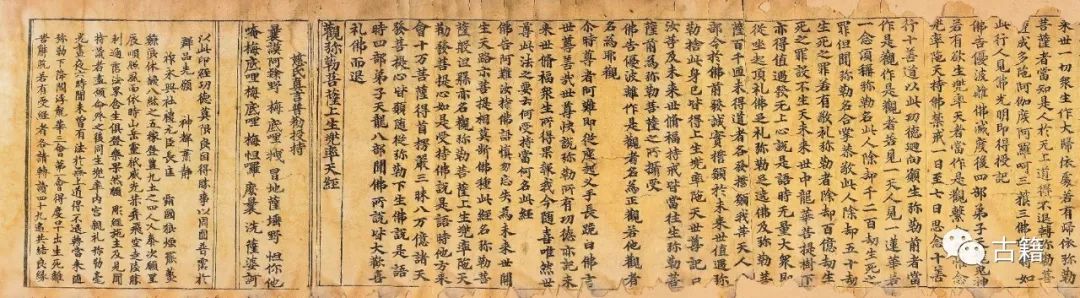 來世一切衆生大歸依處若有歸依弥勒
菩薩者當知是人於无上道得不退轉弥勒
菩薩成多陁阿伽度阿羅呵三藐三佛陁時如
此行人見佛光明即得授記
佛告優波離佛滅度後四部弟子天龍鬼神
若有欲生兜率陁天者當作是觀繫念思惟念
兜率陁天持佛禁戒一日至七日思念十善
行十善道以此功德迴向願生弥勒前者當
作是觀作是觀者若見一天人見一蓮華若
一念頃稱弥勒名此人除却千二百劫生死之
罪但聞弥勒名合掌恭敬此人除却五十劫
生死之罪若有敬礼弥勒者除却百億劫生
死之罪設不生天未來世中龍華菩提樹下
亦得值遇發无上心說是語時无量大衆即
從坐起頂礼佛足礼弥勒足遶佛及弥勒菩
薩百千迊未得道者各發誓願我等天人八
部今於佛前發誠實誓願於未來世值遇弥
勒捨此身已皆得上生兜率陁天世尊記曰
汝等及未來世脩福持戒皆當往生弥勒菩
薩前爲弥勒菩薩之所攝受
佛告優波離作是觀者名爲正觀若他觀者
名爲邪觀
尒時尊者阿難即從座起叉手長跪白佛言
世尊善哉世尊快說弥勒所有功德亦記未
來世脩福衆生所得果報我今隨喜唯然世
尊此法之要云何受持當何名此經
佛告阿難汝持佛語慎勿忘失爲未來世開
生天路示菩提相莫斷佛種此經名弥勒菩
薩般涅槃亦名觀弥勒菩薩上生兜率陁天
勸發菩提心如是受持佛說是語時他方來
會十万菩薩得首楞嚴三昧八万億諸天
發菩提心皆願隨從弥勒下生佛說是語
時四部弟子天龍八部聞佛所說皆大歡喜
礼佛而退
觀弥勒菩薩上生兜率天經
慈氏真言普勸受持
曩謨阿 野 梅底哩 冒地薩埵野 怛你也他
唵梅底哩梅底哩 梅怛囉 麼曩 洗薩婆訶
以此印經功德
群品光願 神 肅静
祚永興社稷元臣長庄
弥勒下降閻浮龍華三會第一會得度早出生死離
古籍